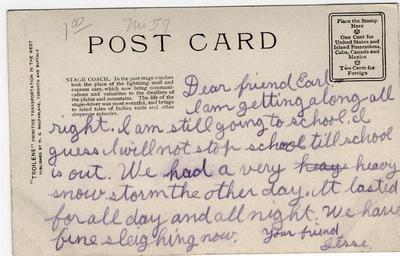 1 00
POST CARD
Place the Stamp
Here
One Cent for
United States and
Island Possessions,
Cuba, Canada and
Mexico
Two Cents for
Foreign
"TROILENE" PRIMITIVE TRANSPORTATION IN THE WEST
STAGE COACH. In the past stage coaches
took the place of the lightning mail and
express cars, which now bring communi-
cations and valuables to the dwellers of
the plains and mountain. The life of the
stage-driver was most eventful, and brings
to mind tales of Indian raids and other
desperate episodes.
Dear friend Earl
I am getting along all
right. I am still going to school. I
guess I will not stop school till school
is out. We had a very heavy heavy
snow storm the other day. It lasted
for all day and all night. We have
fine sleighing now. Your friend
Jesse.